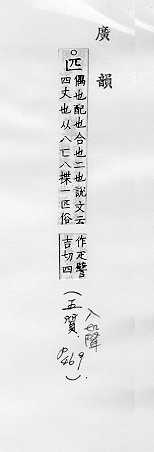 廣韻
○匹
偶也配也合也二也説文云
四丈也从八匸八揲一匹俗
作疋譬
吉切四
(五質、P469).
入聲